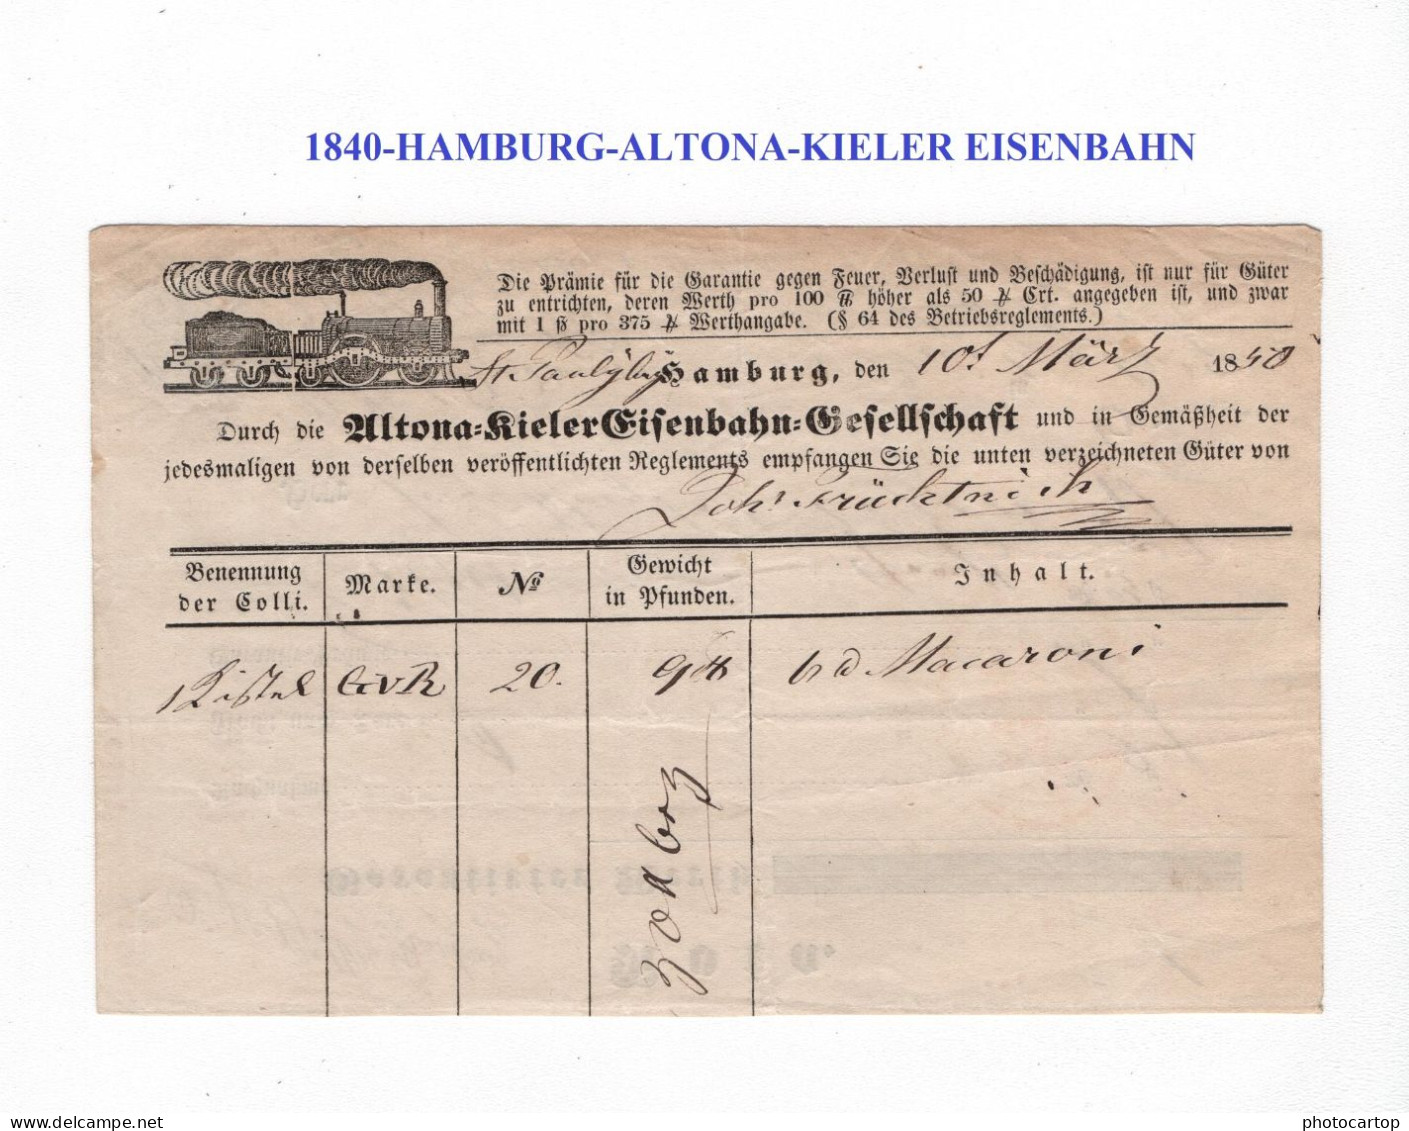 1840-HAMBURG-ALTONA-KIELER EISENBAHN
Die Prämie für die Garantie gegen Feuer, Verlust und Beschädigung, ist nur für Güter
zu entrichten, deren Werth pro 100 ℔ höher als 50 ℳ Crt. angegeben ist, und zwar
mit 1 ß pro 375 ℳ Werthangabe. (§ 64 des Betriebsreglements.)
Hamburg, den 10t März 1850
Durch die Altona-Kieler Eisenbahn-Gesellschaft und in Gemäßheit der
jedesmaligen von derselben veröffentlichten Reglements empfangen Sie die unten verzeichneten Güter von
Benennung der Colli. Marke. No Gewicht in Pfunden. Inhalt.
1 Kistel GvR 20. Macaroni
photocartop
delcampe.net